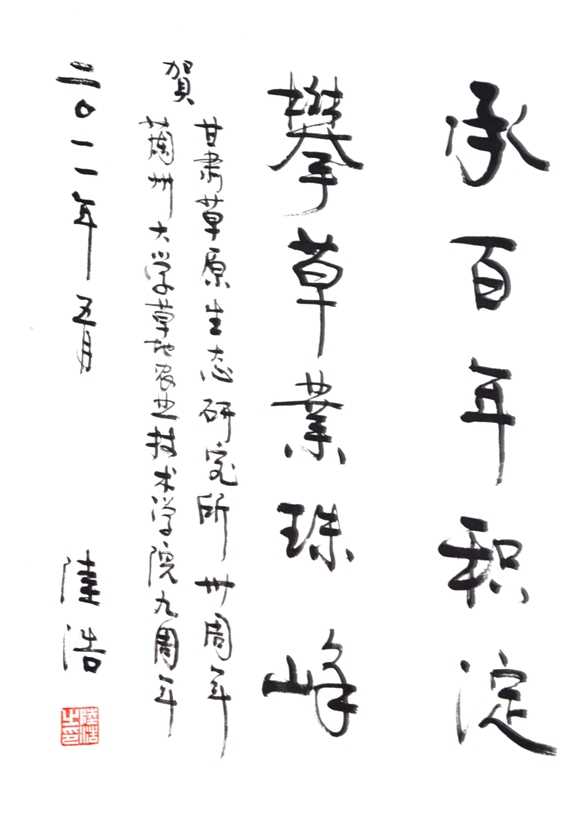 承百年积淀
攀草業珠峰
賀
甘肃草原生态研究所卅周年
蘭州大学草地农业技术学院九周年
二〇一一年五月
陸浩
陸浩之印